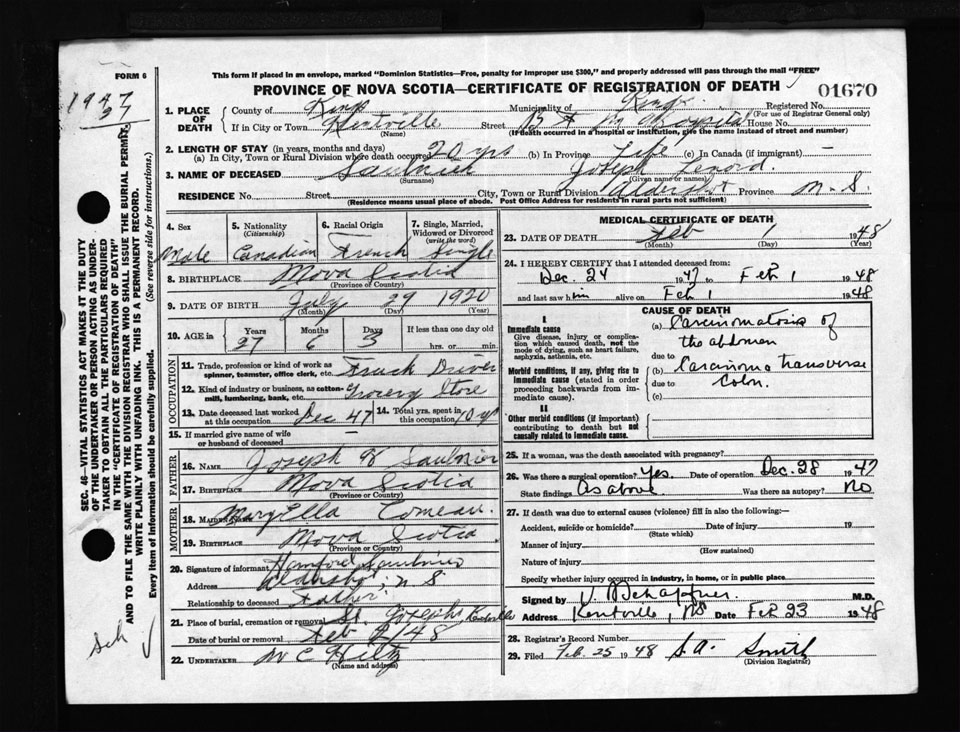 FORM 6
This form if placed in an envelope, marked "Dominion Statistics—Free, penalty for improper use $300," and properly addressed will pass through the mail "FREE"
PROVINCE OF NOVA SCOTIA—CERTIFICATE OF REGISTRATION OF DEATH
01670
1947
37
1. PLACE OF DEATH County of Kings Municipality of Kings Registered No. (For use of Registrar General only)
If in City or Town Kentville (Name) Street B F M Hospital House No.
(If death occurred in a hospital or institution, give the name instead of street and number)
2. LENGTH OF STAY (in years, months and days)
(a) In City, Town or Rural Division where death occurred 20 yrs (b) In Province Life (c) In Canada (if immigrant) —
3. NAME OF DECEASED Saulnier (Surname) Joseph Lenord. (Given name or names)
RESIDENCE No. Street City, Town or Rural Division Aldershot Province N. S.
(Residence means usual place of abode. Post Office Address for residents in rural parts not sufficient)
4. Sex Male
5. Nationality (Citizenship) Canadian
6. Racial Origin French
7. Single, Married, Widowed or Divorced (write the word) Single
8. BIRTHPLACE Nova Scotia (Province or Country)
9. DATE OF BIRTH July 29 1920 (Month) (Day) (Year)
10. AGE in Years 27 Months 6 Days 3 If less than one day old hrs. or min.
OCCUPATION
11. Trade, profession or kind of work as spinner, teamster, office clerk, etc. Truck Driver
12. Kind of industry or business, as cotton-mill, lumbering, bank, etc. Grocery Store
13. Date deceased last worked at this occupation Dec 47 14. Total yrs. spent in this occupation 10 yr
15. If married give name of wife or husband of deceased —
FATHER
16. NAME Joseph H Saulnier
17. BIRTHPLACE Nova Scotia (Province or Country)
MOTHER
18. MAIDEN NAME Mary Ella Comeau.
19. BIRTHPLACE Nova Scotia (Province or Country)
20. Signature of informant Saulnier
Address Aldershot, N S
Relationship to deceased Father
21. Place of burial, cremation or removal St. Josephs, Kentville
Date of burial or removal Feb 2/48
22. UNDERTAKER W C Hiltz (Name and address)
MEDICAL CERTIFICATE OF DEATH
23. DATE OF DEATH Feb 1 1948 (Month) (Day) (Year)
24. I HEREBY CERTIFY that I attended deceased from:
Dec. 24 1947 to Feb 1 1948
and last saw him alive on Feb 1 1948
CAUSE OF DEATH
I
Immediate cause
Give disease, injury or complication which caused death, not the mode of dying, such as heart failure, asphyxia, asthenia, etc.
(a) Carcinomatosis of the abdomen
due to
Morbid conditions, if any, giving rise to immediate cause (stated in order proceeding backwards from immediate cause).
(b) Carcinoma transverse Colon.
due to
(c)
II
Other morbid conditions (if important) contributing to death but not causally related to immediate cause.
25. If a woman, was the death associated with pregnancy?
26. Was there a surgical operation? Yes. Date of operation Dec. 28 1947
State findings As above Was there an autopsy? No
27. If death was due to external causes (violence) fill in also the following:—
Accident, suicide or homicide? (State which) Date of injury 19
Manner of injury (How sustained)
Nature of injury
Specify whether injury occurred in industry, in home, or in public place
Signed by V. D. Schaffner M.D.
Address Kentville, NS Date Feb 23 1948
28. Registrar's Record Number
29. Filed Feb. 25 1948 S. A. Smith (Division Registrar)
SEC. 46—VITAL STATISTICS ACT MAKES IT THE DUTY
OF THE UNDERTAKER OR PERSON ACTING AS UNDER-
TAKER TO OBTAIN ALL THE PARTICULARS REQUIRED
IN THE "CERTIFICATE OF REGISTRATION OF DEATH"
AND TO FILE THE SAME WITH THE DIVISION REGISTRAR WHO SHALL ISSUE THE BURIAL PERMIT.
WRITE PLAINLY WITH UNFADING INK. THIS IS A PERMANENT RECORD.
Every item of information should be carefully supplied. (See reverse side for instructions.)